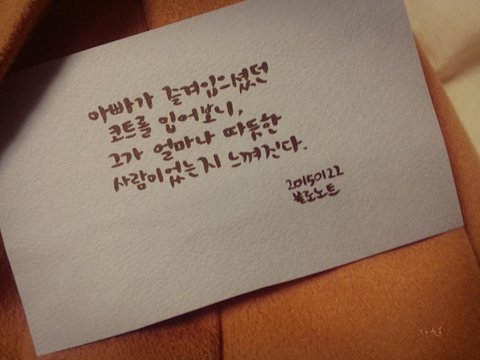 아빠가 즐겨입으셨던
코트를 입어보니,
그가 얼마나 따듯한
사람이었는지 느껴진다.
20150122